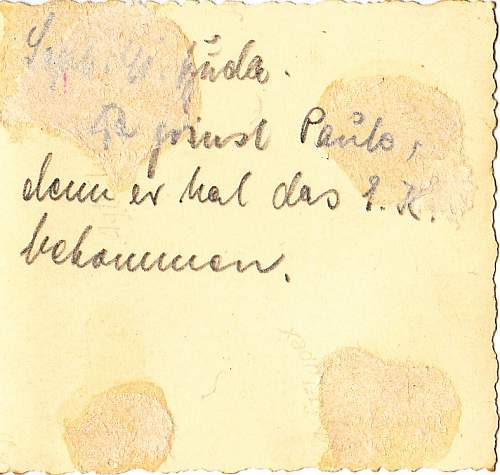 Sept. 41.
Da grinst Paule,
denn er hat das E. K.
bekommen.